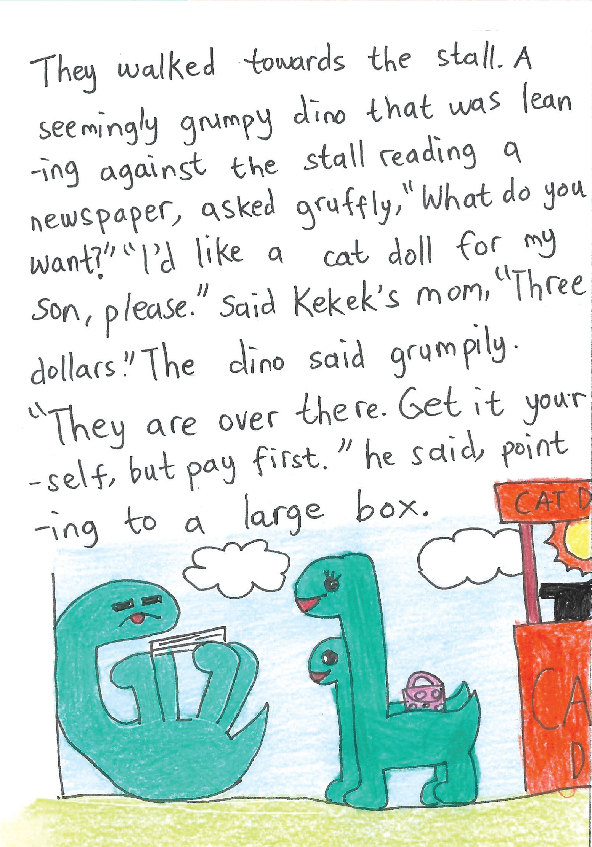 They walked towards the stall. A
seemingly grumpy dino that was lean
-ing against the stall reading a
newspaper, asked gruffly, "What do you
want?" "I'd like a cat doll for my
son, please." Said Kekek's mom, "Three
dollars." The dino said grumpily.
"They are over there. Get it your
-self, but pay first." he said, point
-ing to a large box.
CAT D
CA
D